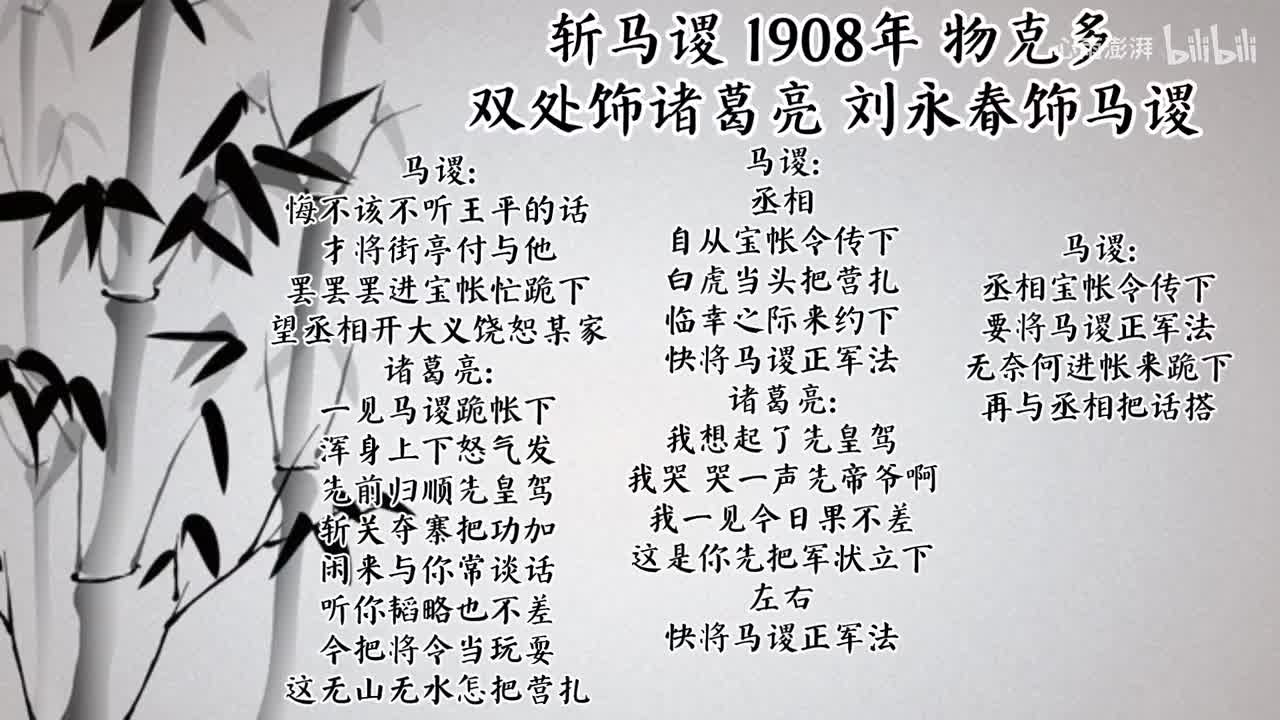 斩马谡 1908年 物克多
双处饰诸葛亮 刘永春饰马谡
心雨澎湃 bilibili
马谡:
悔不该不听王平的话
才将街亭付与他
罢罢罢进宝帐忙跪下
望丞相开大义饶恕某家
诸葛亮:
一见马谡跪帐下
浑身上下怒气发
先前归顺先皇驾
斩关夺寨把功加
闲来与你常谈话
听你韬略也不差
令把将令当玩耍
这无山无水怎把营扎
马谡:
丞相
自从宝帐令传下
白虎当头把营扎
临幸之际来约下
快将马谡正军法
诸葛亮:
我想起了先皇驾
我哭 哭一声先帝爷啊
我一见今日果不差
这是你先把军状立下
左右
快将马谡正军法
马谡:
丞相宝帐令传下
要将马谡正军法
无奈何进帐来跪下
再与丞相把话搭